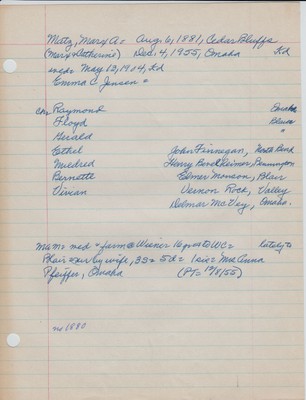 Metz, Marx A = Aug. 6, 1881, Cedar Bluffs
(Marx Detherine) Dec. 4, 1955, Omaha Kd
wed = May 13, 1904, Kd
Emma C. Jensen =
chn Raymond Omaha
Floyd
Gerald "
Ethel John Finnegan, North Bend
Mildred Harry Bendt Reimer, Bennington
Bernette Elmer Monson, Blair
Vivian Vernon Rock, Valley
Delmar McVey, Omaha.
MAM = med = farm @ 16 yrs to WC = lately to
Blair = sur by wife, 3s = 5d = 1 sis = Mrs Anna
Pfeiffer, Omaha (PT = 12/8/55)
no 1880